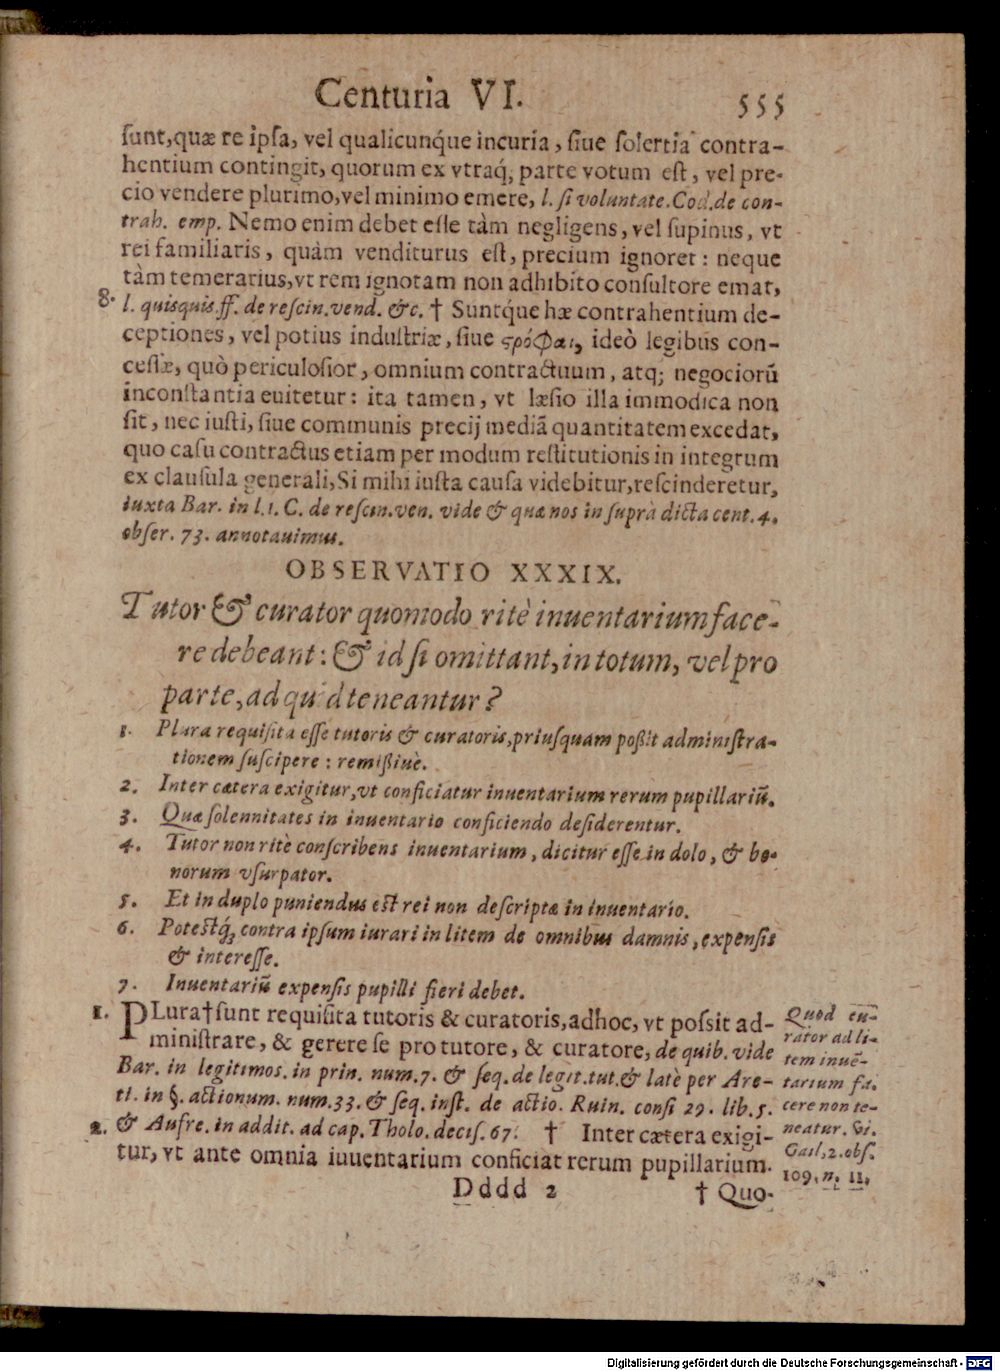 Centuria VI. 555
sunt, quæ re ipsa, vel qualicunq́ue incuria, siue solertia contra-
hentium contingit, quorum ex vtraq́; parte votum est, vel pre-
cio vendere plurimo, vel minimo emere, l. si voluntate. Cod. de con-
trah. emp. Nemo enim debet esse tàm negligens, vel supinus, vt
rei familiaris, quàm venditurus est, precium ignoret: neque
tàm temerarius, vt rem ignotam non adhibito consultore emat,
8. l. quisquis. ff. de rescin. vend. &c. † Suntq́ue hæ contrahentium de-
ceptiones, vel potius industriæ, siue ςρόφαι, ideò legibus con-
cessæ, quò periculosior, omnium contractuum, atq; negociorũ
inconstantia euitetur: ita tamen, vt læsio illa immodica non
sit, nec iusti, siue communis precij mediã quantitatem excedat,
quo casu contractus etiam per modum restitutionis in integrum
ex clausula generali, Si mihi iusta causa videbitur, rescinderetur,
iuxta Bar. in l. 1. C. de rescin. ven. vide & quæ nos in suprà dicta cent. 4.
obser. 73. annotauimus.
OBSERVATIO XXXIX.
Tutor & curator quomodo ritè inuentarium face-
re debeant: & id si omittant, in totum, vel pro
parte, ad quid teneantur?
1. Plura requisita esse tutoris & curatoris, priusquam poßit administra-
tionem suscipere: remißiuè.
2. Inter cætera exigitur, vt conficiatur inuentarium rerum pupillariũ.
3. Quæ solennitates in inuentario conficiendo desiderentur.
4. Tutor non ritè conscribens inuentarium, dicitur esse in dolo, & bo-
norum vsurpator.
5. Et in duplo puniendus est rei non descriptæ in inuentario.
6. Potestq́; contra ipsum iurari in litem de omnibus damnis, expensis
& interesse.
7. Inuentariũ expensis pupilli fieri debet.
1. PLura † sunt requisita tutoris & curatoris, adhoc, vt possit ad-
ministrare, & gerere se pro tutore, & curatore, de quib. vide
Bar. in legitimos. in prin. num. 7. & seq. de legit. tut. & latè per Are-
ti. in §. actionum. num. 33. & seq. inst. de actio. Ruin. consi 29. lib. 5.
2. & Aufre. in addit. ad cap. Tholo. decis. 67. † Inter cætera exigi-
tur, vt ante omnia inuentarium conficiat rerum pupillarium.
Quod cu-
rator ad li-
tem inuẽ-
tarium fa-
cere non te-
neatur. Vi.
Gail, 2. obs.
109. n. 11.
Dddd 2 † Quo-
Digitalisierung gefördert durch die Deutsche Forschungsgemeinschaft - DFG